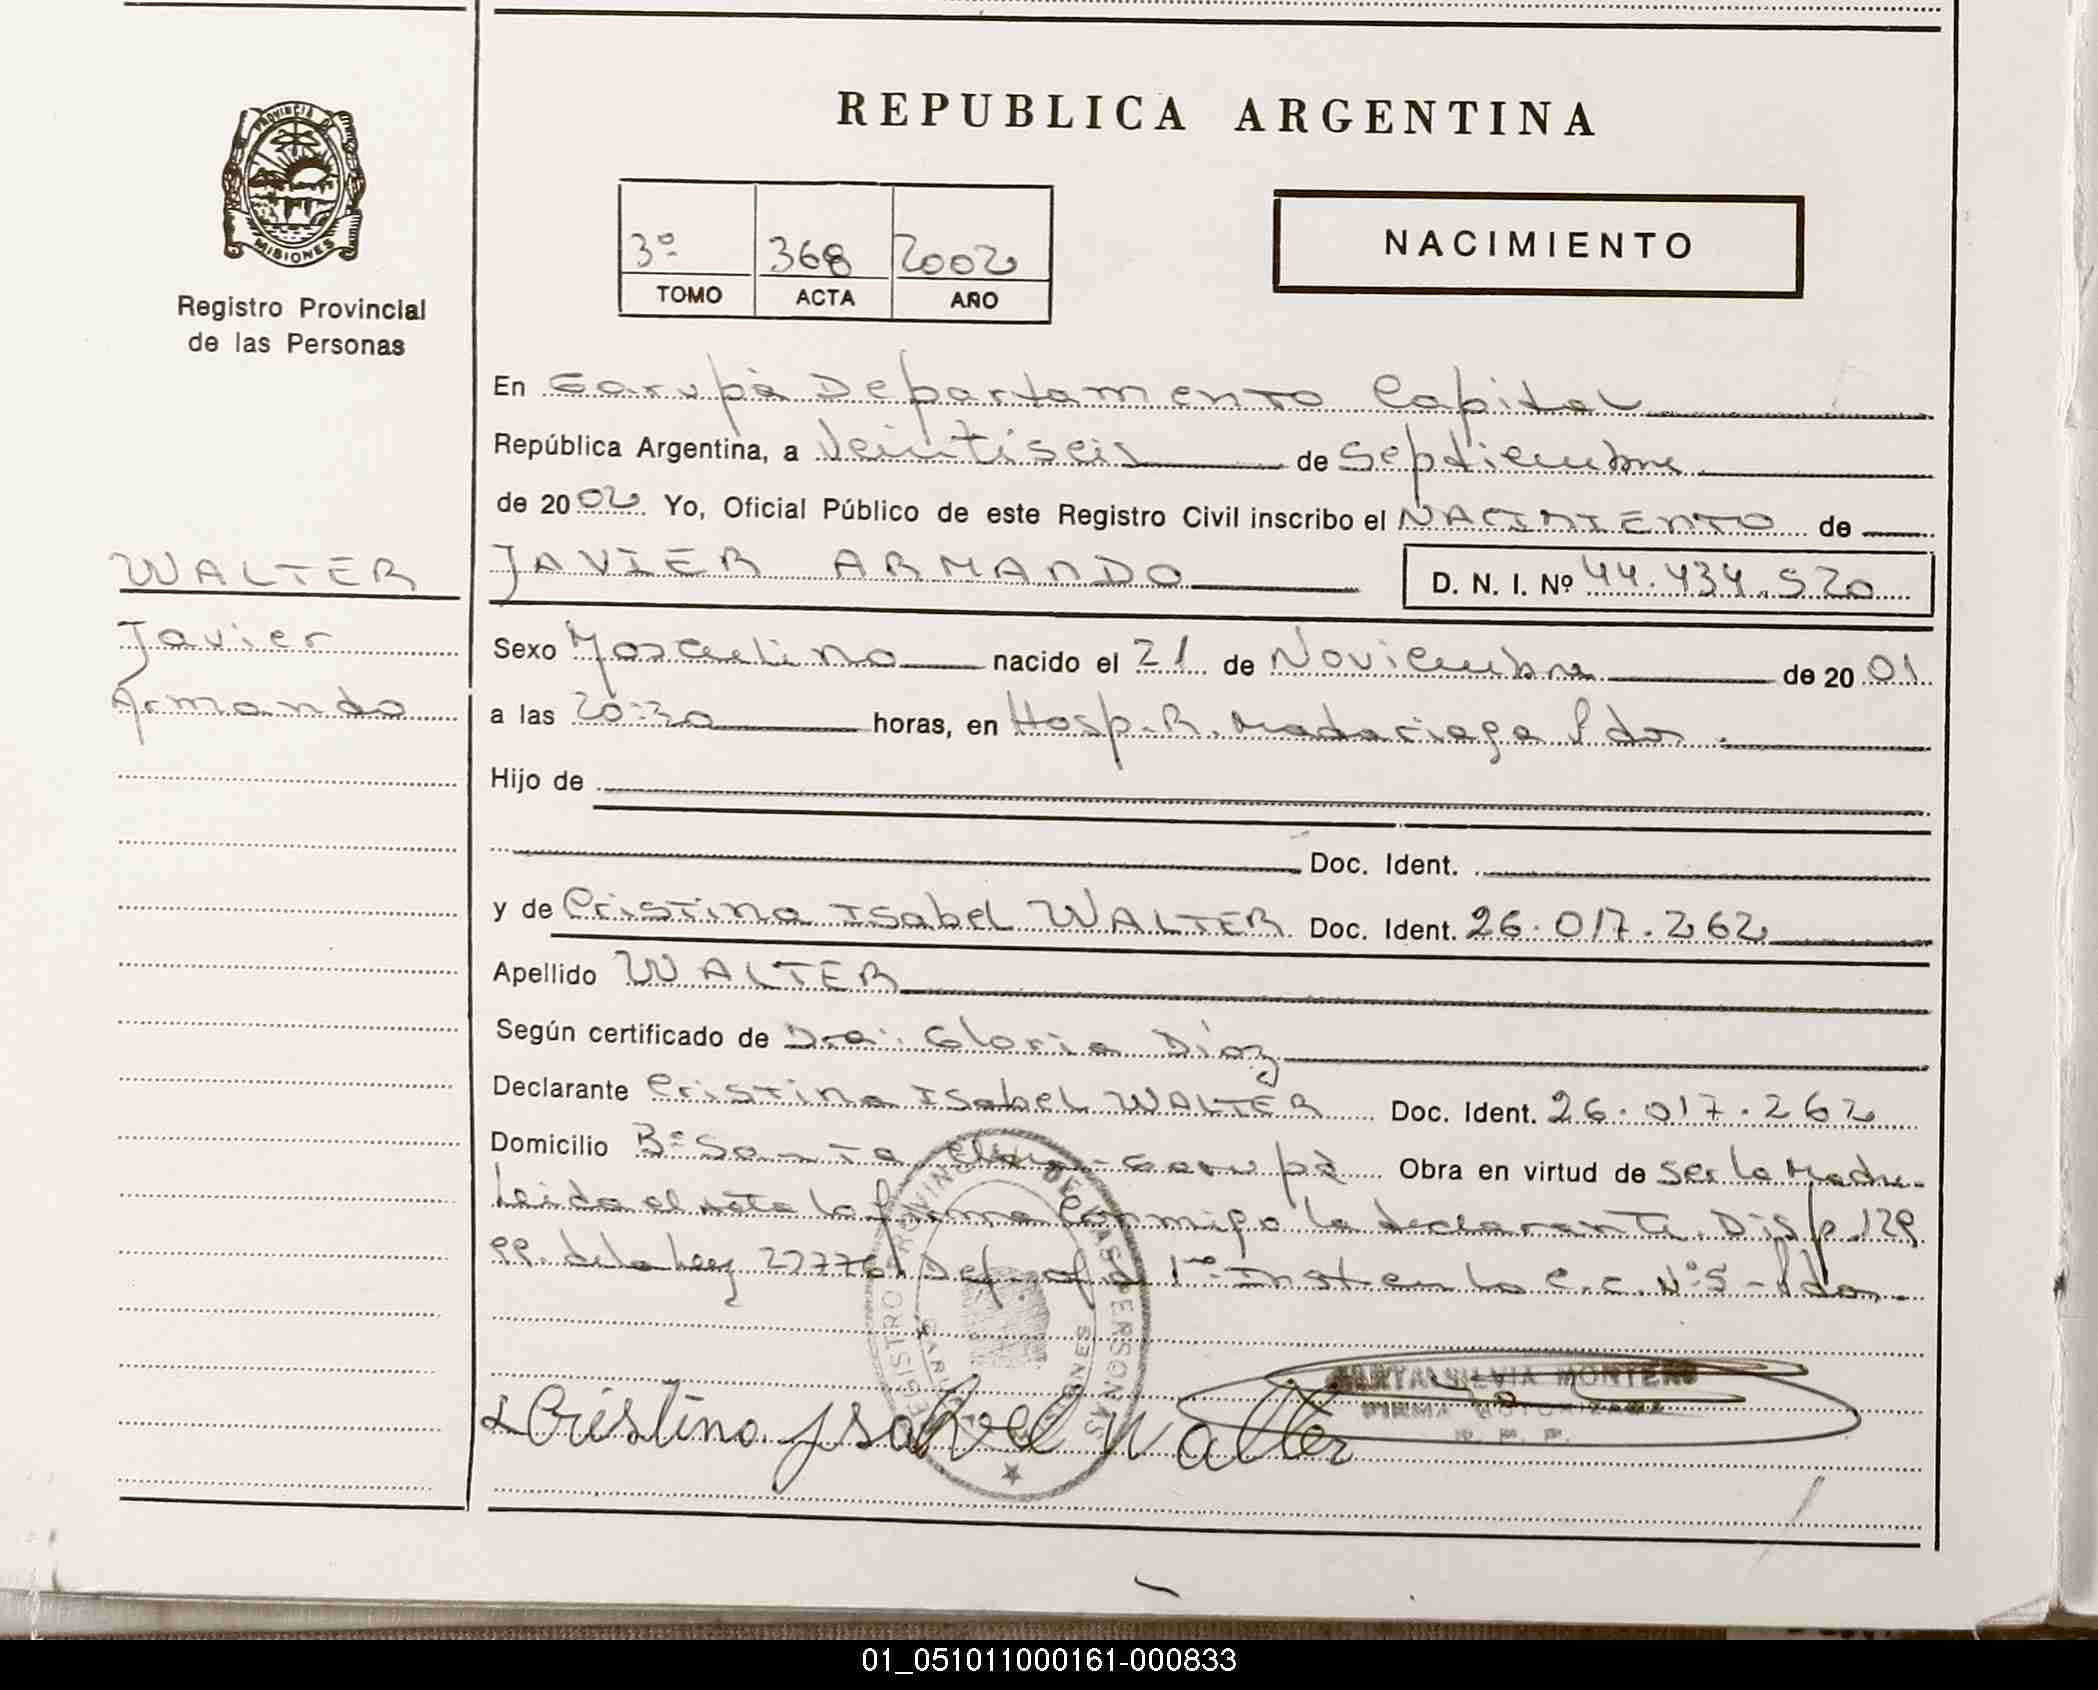 REPUBLICA ARGENTINA
PROVINCIA DE
MISIONES
Registro Provincial
de las Personas
3º 368 2002
TOMO ACTA AÑO
NACIMIENTO
En Garupà Departamento Capital
República Argentina, a Veintiseis de Septiembre
de 2002 Yo, Oficial Público de este Registro Civil inscribo el NACIMIENTO de
WALTER
Javier
Armando
JAVIER ARMANDO D. N. I. Nº 44.434.520
Sexo Masculino nacido el 21 de Noviembre de 2001
a las 20:30 horas, en Hosp. R. Madariaga Pdas.
Hijo de
Doc. Ident.
y de Cristina Isabel WALTER Doc. Ident. 26.017.262
Apellido WALTER
Según certificado de Dra: Gloria Díaz
Declarante Cristina Isabel WALTER Doc. Ident. 26.017.262
Domicilio Bº Santa Garupà Obra en virtud de ser la Madre
Leida el acta la firma conmigo la declarante. Disp. 129
de la Ley Def. of. de 1ra Inst. en lo C.C. Nº 5 - Pdas.
REGISTRO PROVINCIAL DE LAS PERSONAS
MISIONES
Cristina Ysabel Walter
SILVIA MONTERO
FIRMA AUTORIZADA
R. P. P.
01_051011000161-000833